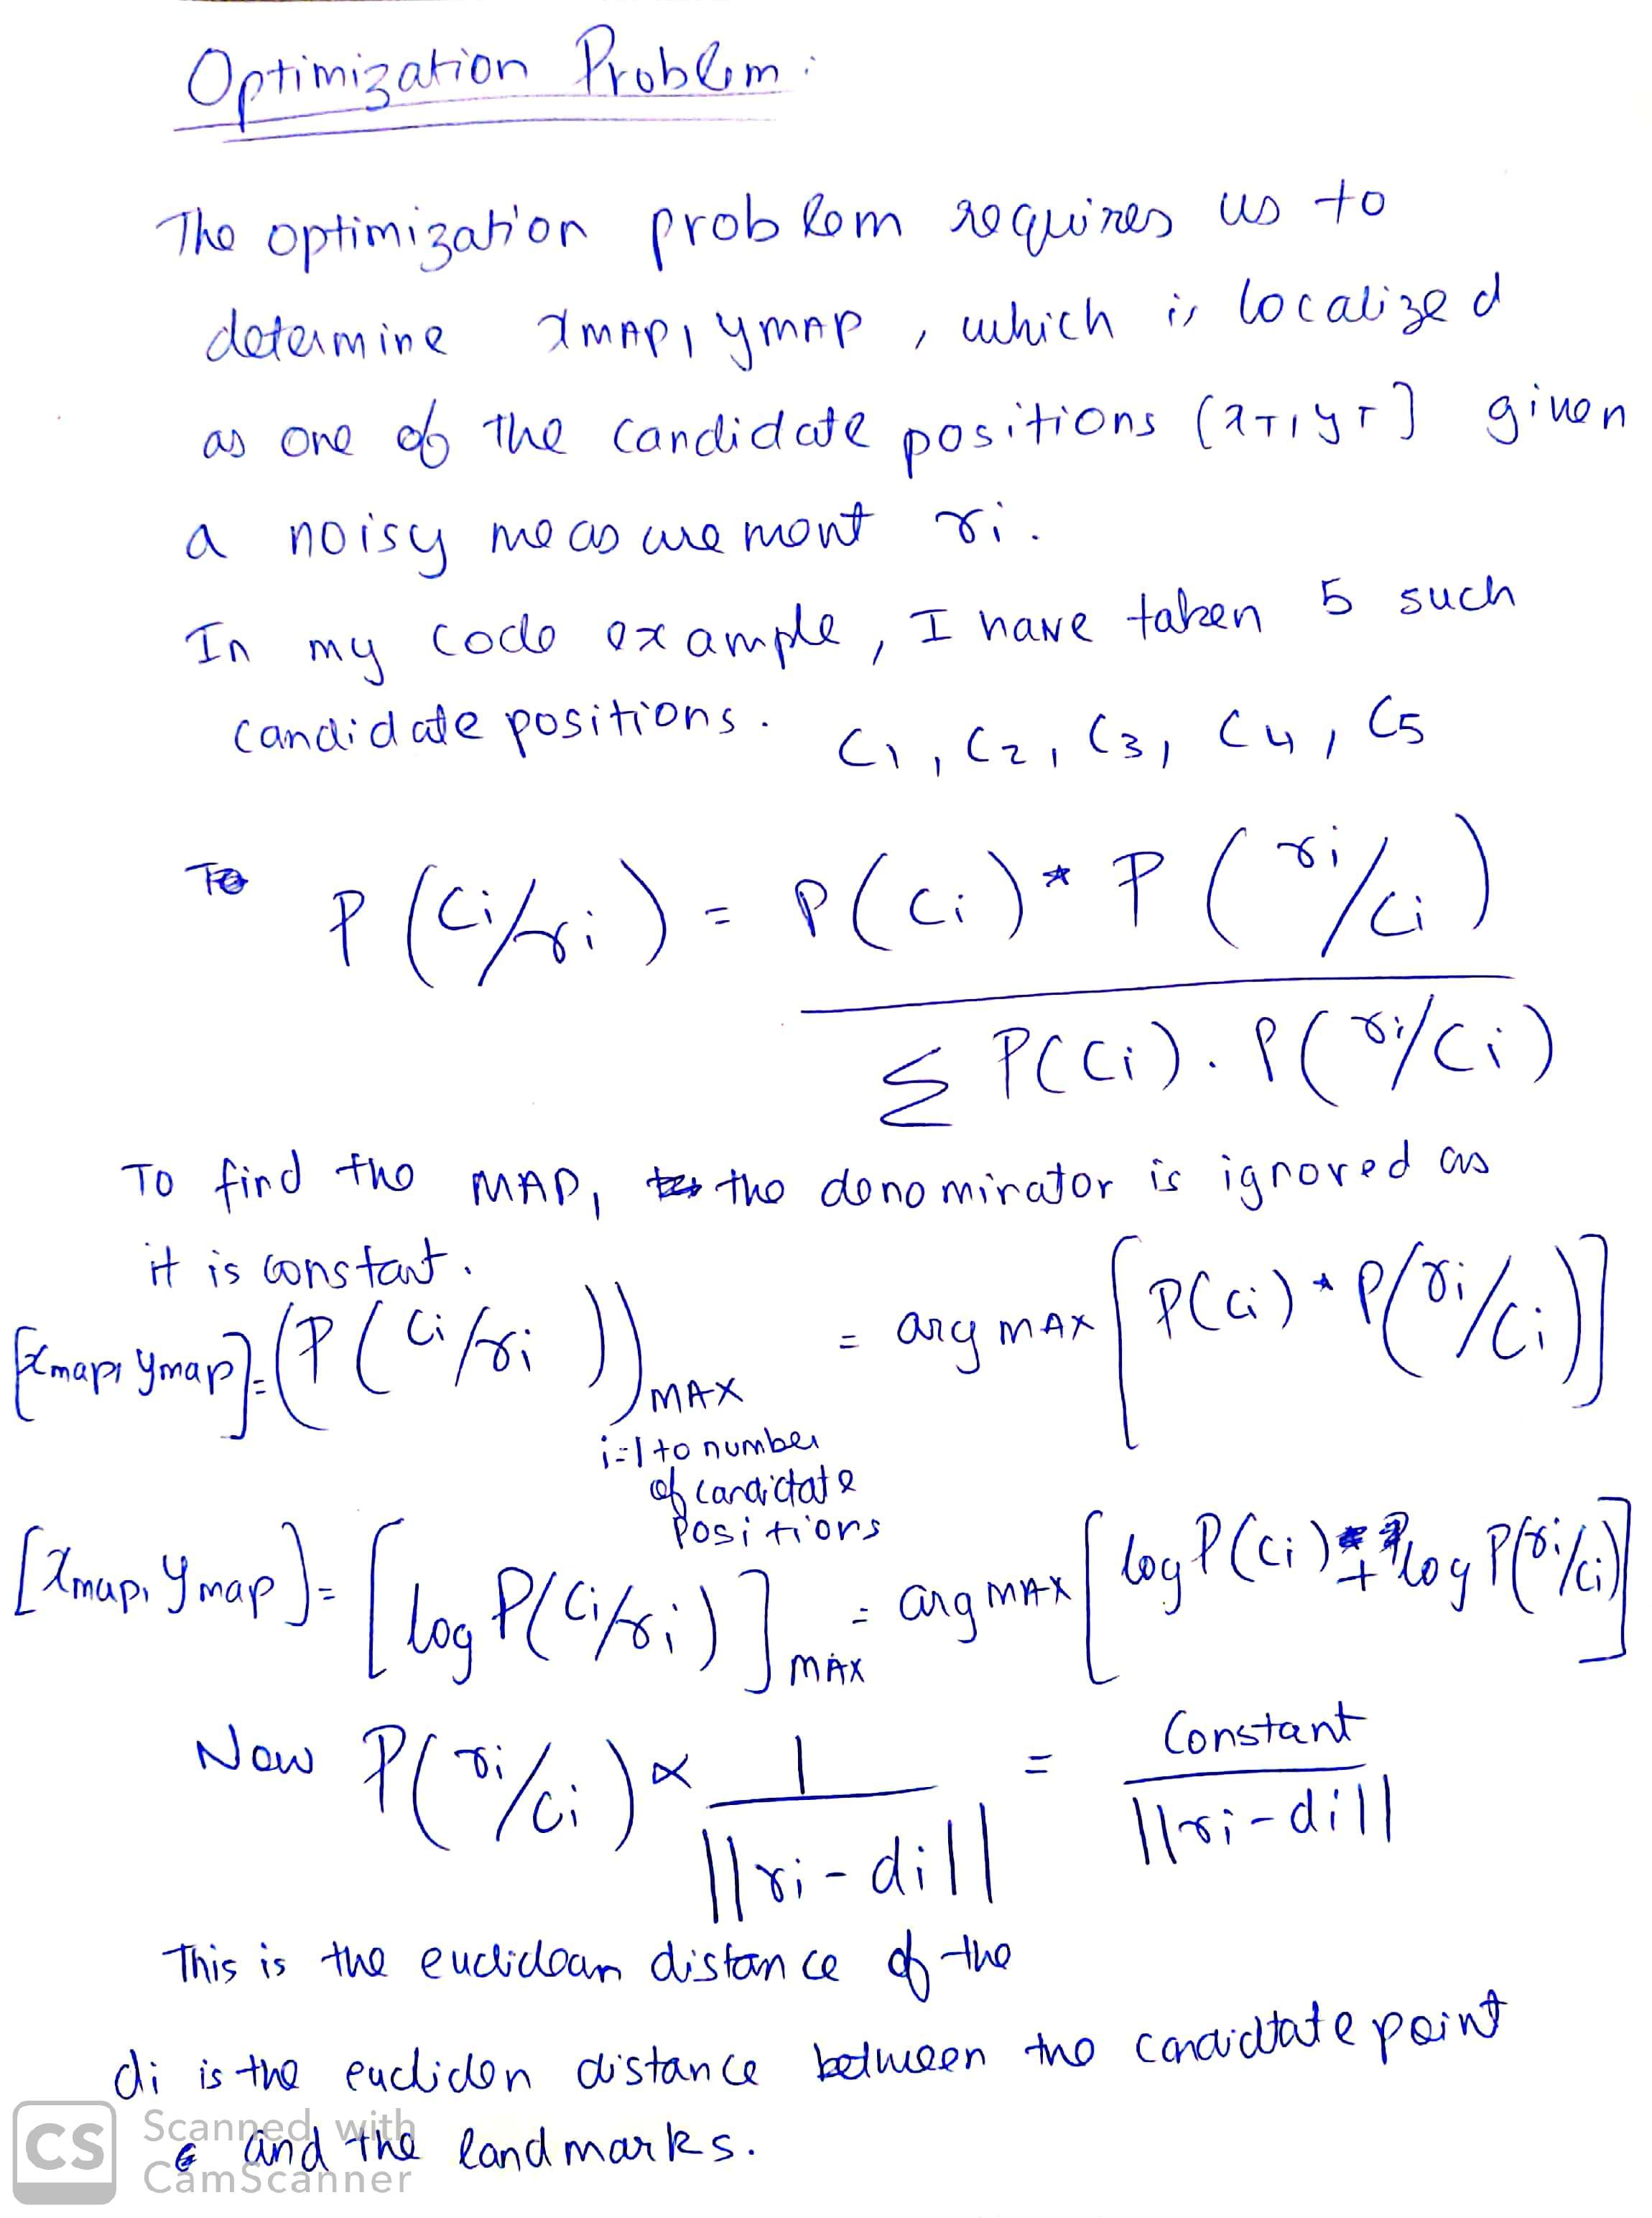 Optimization Problem:
The optimization problem requires us to
determine xMAP, yMAP, which is localized
as one of the candidate positions (xT, yT] given
a noisy measurement ri.
In my code example, I have taken 5 such
candidate positions. C1, C2, C3, C4, C5
P(Ci/ri) = P(Ci) * P(ri/Ci)
Σ P(Ci). P(ri/Ci)
To find the MAP, the denominator is ignored as
it is constant.
[xmap, ymap] = (P(Ci/ri))MAX = arg MAX [P(Ci) * P(ri/Ci)]
i=1 to number
of candidate
Positions
[xmap, ymap] = [log P(Ci/ri)]MAX = arg MAX [log P(Ci) + log P(ri/Ci)]
Now P(ri/Ci) ∝ 1/||ri-di|| = Constant/||ri-di||
This is the euclidean distance of the
di is the eucliden distance between the candidtate point
and the landmarks.
CS Scanned with
CamScanner